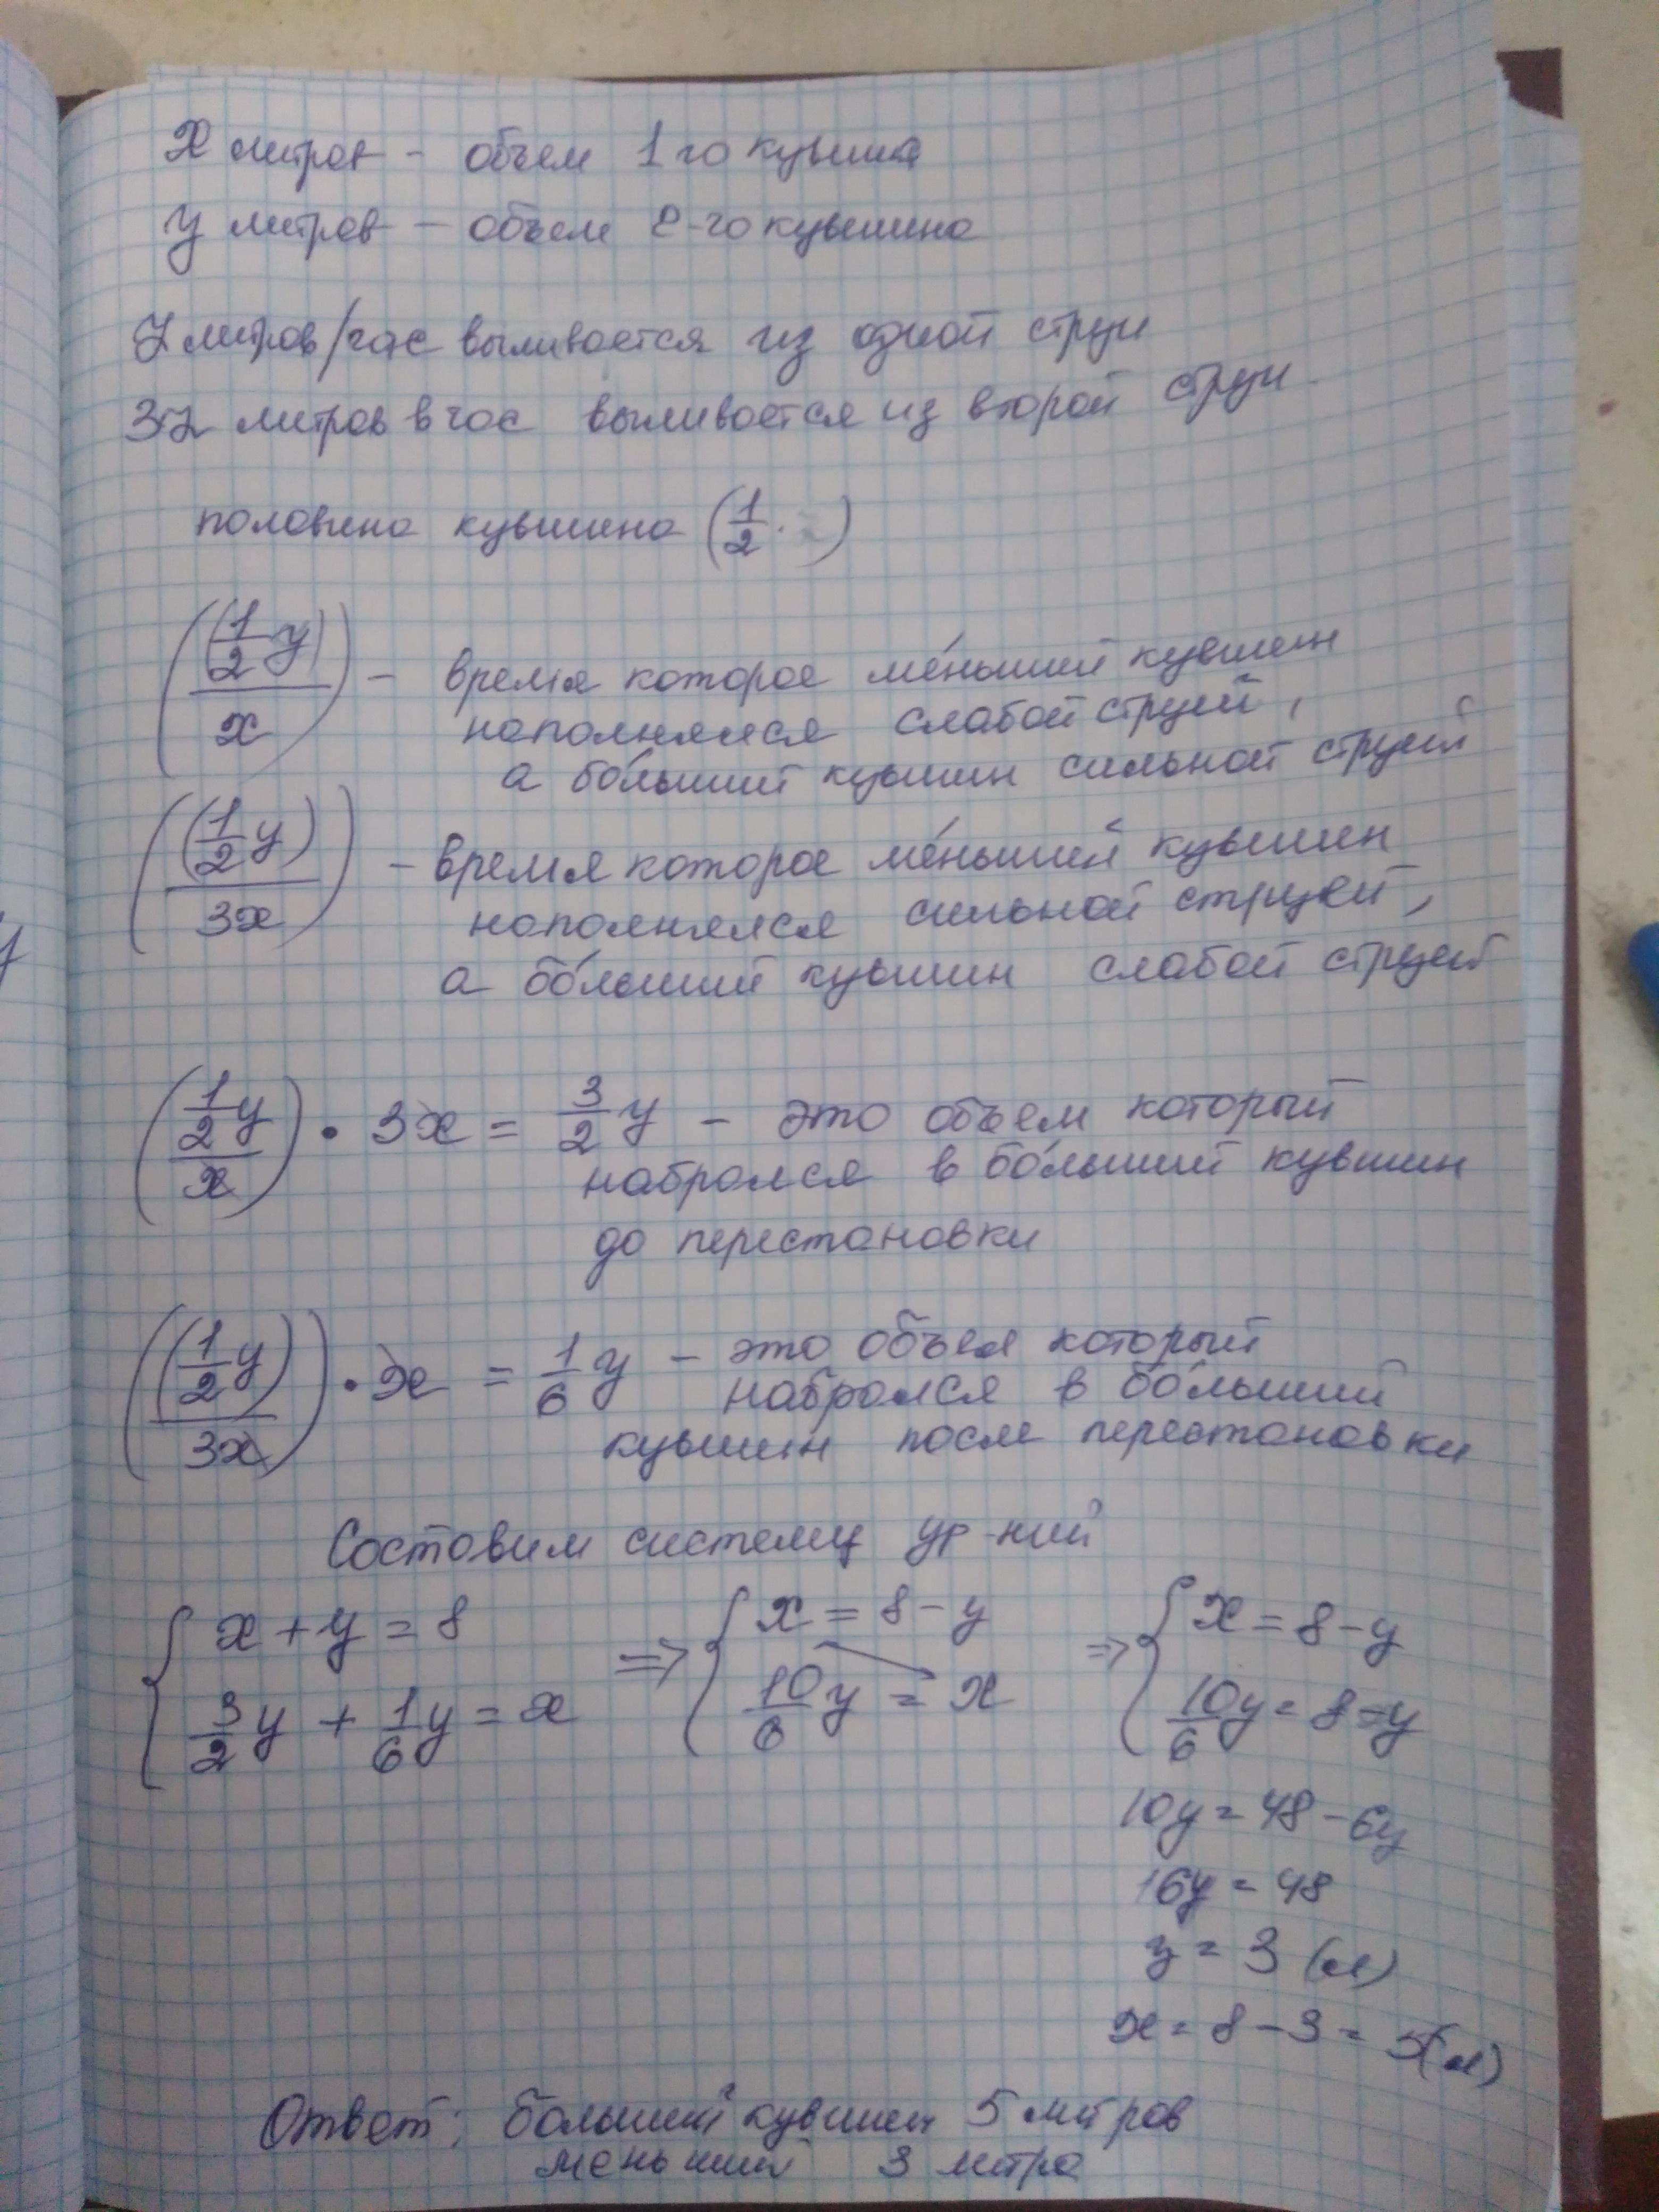 X литров - объем 1го кувшина
У литров - объем 2-го кувшина
Z литров/час выливается из одной струи
3Z литров в час выливается из второй струи
половина кувшина (1/2 · )
((1/2 y)/x) - время которое ме́ньший кувшин
наполнялся слабой струей,
а бо́льший кувшин сильной струей
((1/2 y)/3x) - время которое ме́ньший кувшин
наполнялся сильной струей,
а бо́льший кувшин слабой струей
((1/2 y)/x) • 3x = 3/2 y - это объем который
набрался в бо́льший кувшин
до перестановки
((1/2 y)/3x) • x = 1/6 y - это объем который
набрался в больший
кувшин после перестановки
Составим систему ур-ний
{ x + y = 8 => { x = 8 - y => { x = 8 - y
3/2 y + 1/6 y = x 10/6 y = x 10/6 y = 8 - y
10y = 48 - 6y
16y = 48
y = 3 (л)
x = 8 - 3 = 5(л)
Ответ: больший кувшин 5 литров
меньший 3 литра